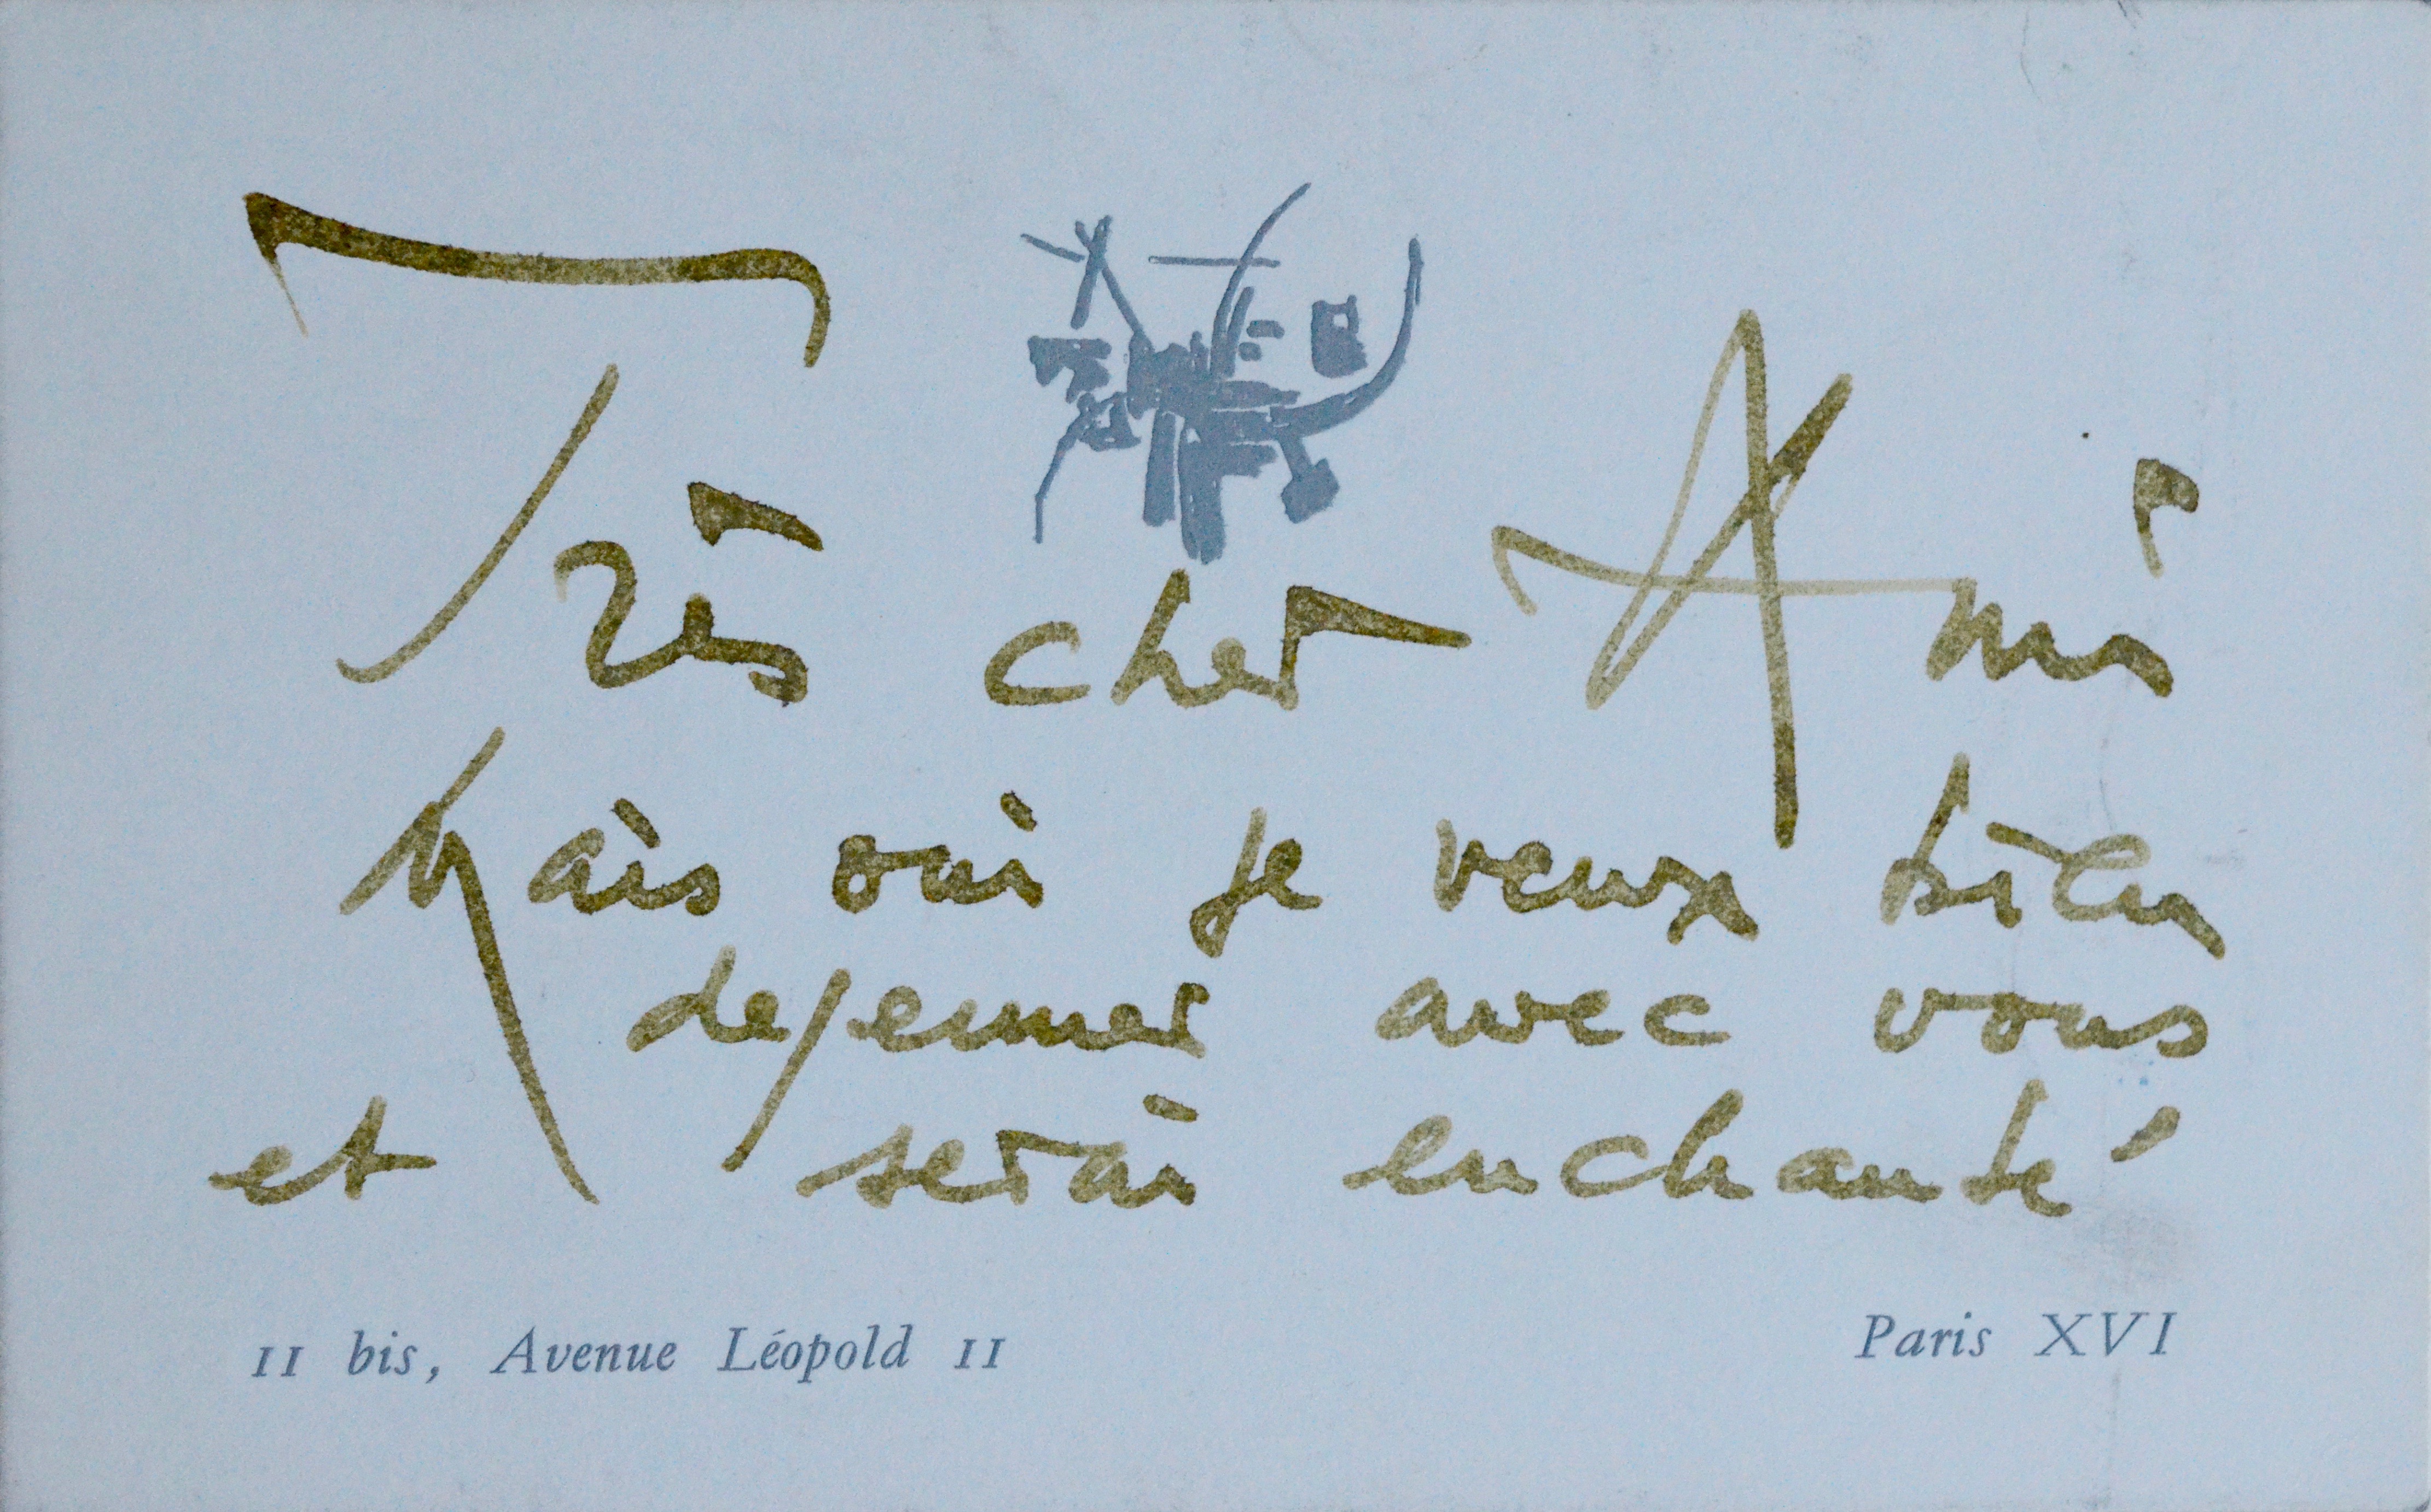 Très cher Ami
Mais oui je veux bien
dejeuner avec vous
et serai enchanté
11 bis, Avenue Léopold II
Paris XVI